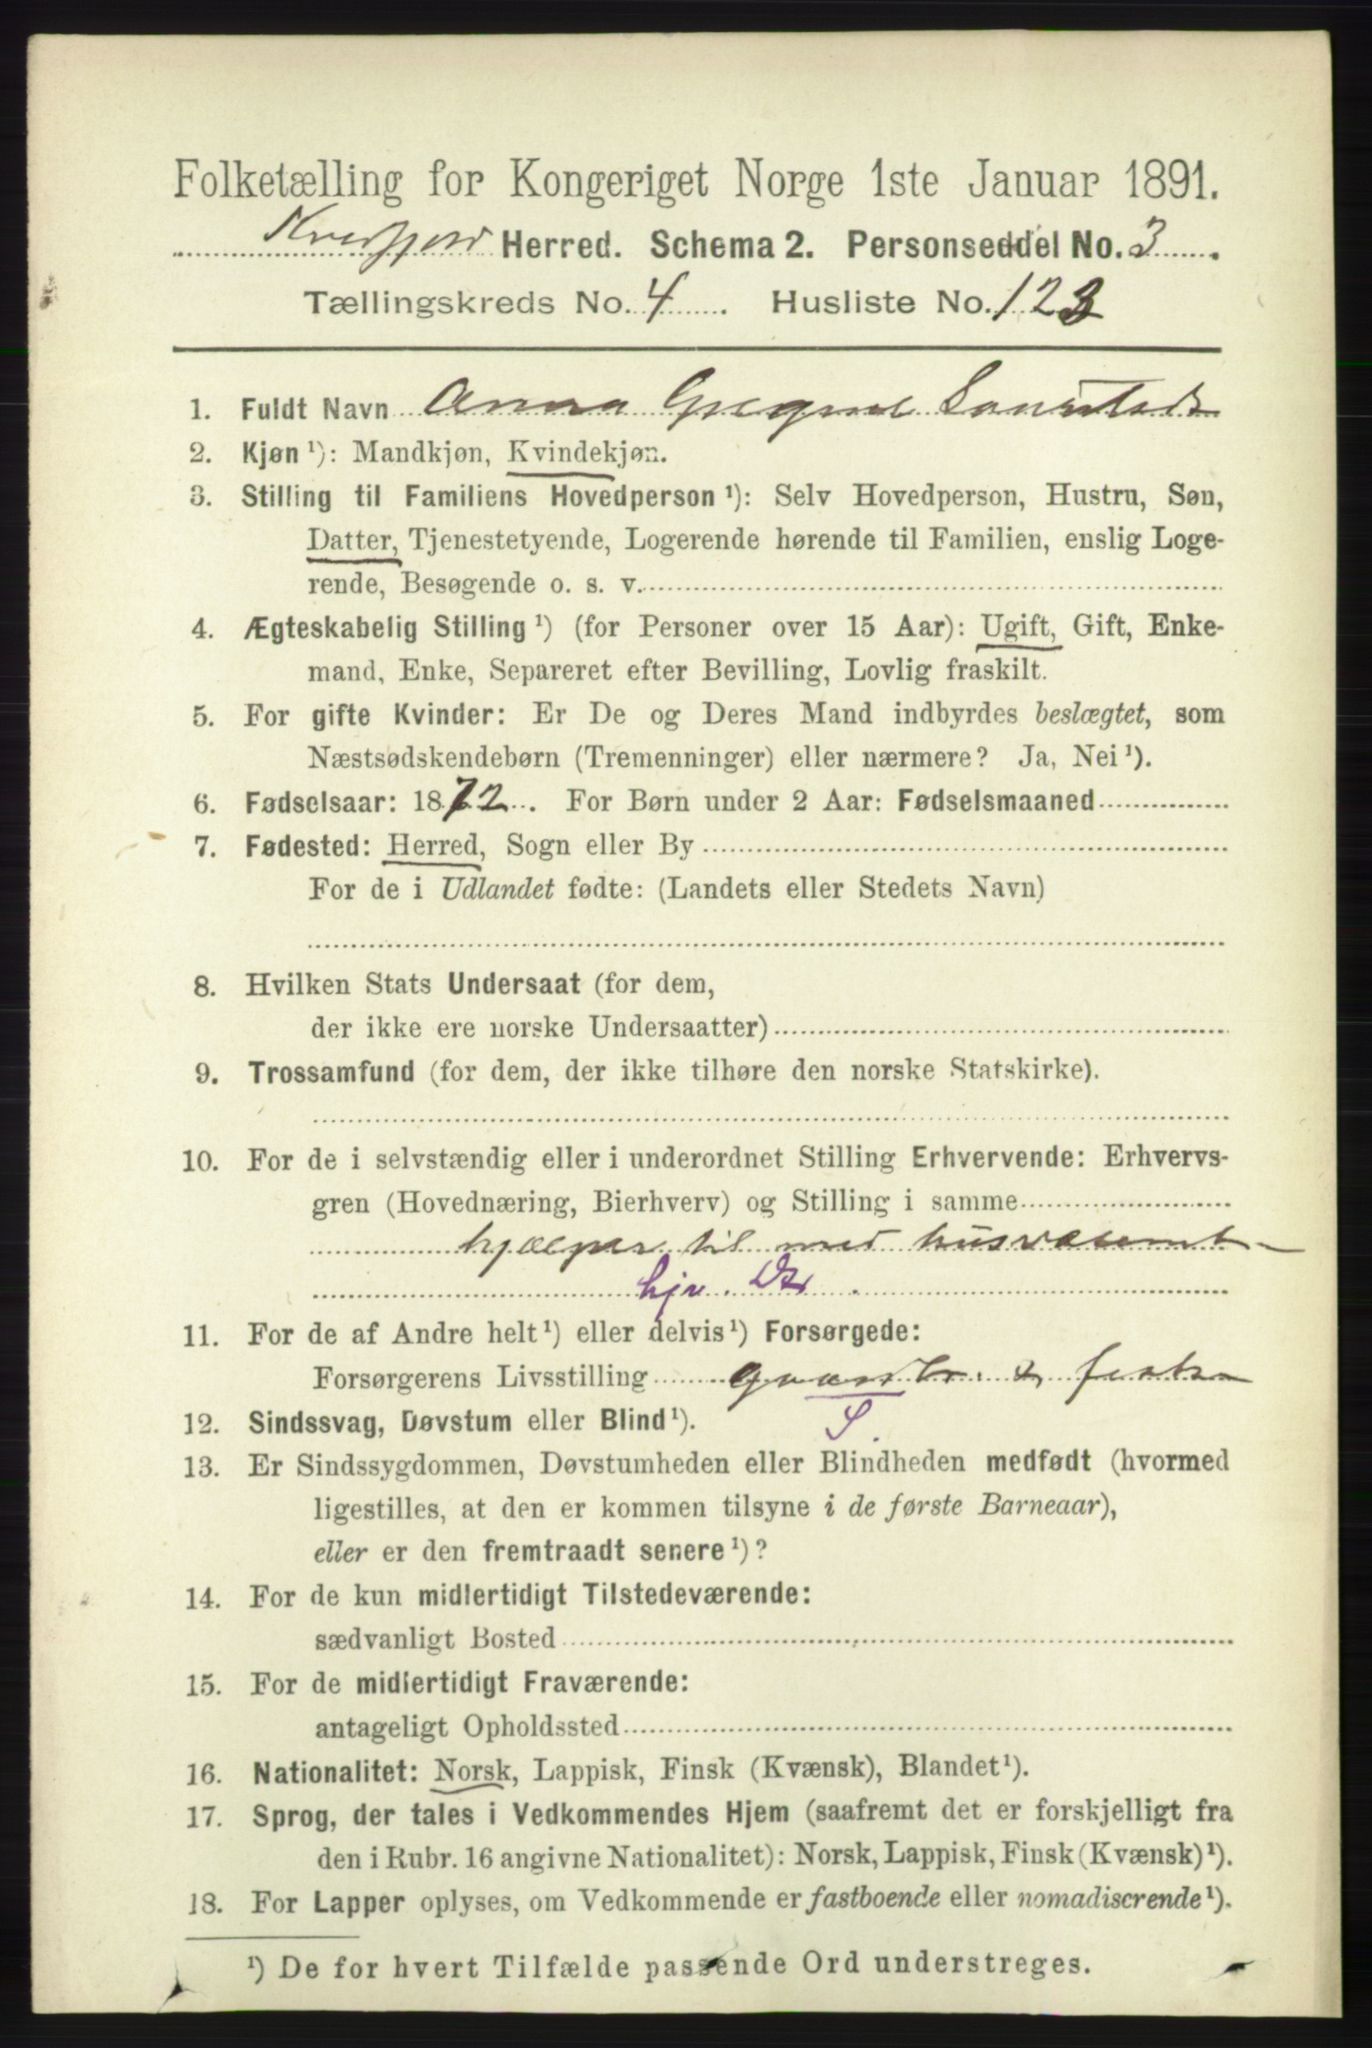 Folketælling for Kongeriget Norge 1ste Januar 1891.
Kvedfjord Herred. Schema 2. Personseddel No. 3
Tællingskreds No. 4 Husliste No. 123
1. Fuldt Navn Anna
2. Kjøn ¹): Mandkjøn, Kvindekjøn.
3. Stilling til Familiens Hovedperson ¹): Selv Hovedperson, Hustru, Søn,
Datter, Tjenestetyende, Logerende hørende til Familien, enslig Loge-
rende, Besøgende o. s. v.
4. Ægteskabelig Stilling ¹) (for Personer over 15 Aar): Ugift, Gift, Enke-
mand, Enke, Separeret efter Bevilling, Lovlig fraskilt.
5. For gifte Kvinder: Er De og Deres Mand indbyrdes beslægtet, som
Næstsødskendebørn (Tremenninger) eller nærmere? Ja, Nei ¹).
6. Fødselsaar: 1872. For Børn under 2 Aar: Fødselsmaaned
7. Fødested: Herred, Sogn eller By
For de i Udlandet fødte: (Landets eller Stedets Navn)
8. Hvilken Stats Undersaat (for dem,
der ikke ere norske Undersaatter)
9. Trossamfund (for dem, der ikke tilhøre den norske Statskirke).
10. For de i selvstændig eller i underordnet Stilling Erhvervende: Erhvervs-
gren (Hovednæring, Bierhverv) og Stilling i samme
hjælper til med husvæsenet
hjv. Dr
11. For de af Andre helt ¹) eller delvis ¹) Forsørgede:
Forsørgerens Livsstilling gaardbr. &
S.
12. Sindssvag, Døvstum eller Blind ¹).
13. Er Sindssygdommen, Døvstumheden eller Blindheden medfødt (hvormed
ligestilles, at den er kommen tilsyne i de første Barneaar),
eller er den fremtraadt senere ¹)?
14. For de kun midlertidigt Tilstedeværende:
sædvanligt Bosted
15. For de midlertidigt Fraværende:
antageligt Opholdssted
16. Nationalitet: Norsk, Lappisk, Finsk (Kvænsk), Blandet ¹).
17. Sprog, der tales i Vedkommendes Hjem (saafremt det er forskjelligt fra
den i Rubr. 16 angivne Nationalitet): Norsk, Lappisk, Finsk (Kvænsk) ¹).
18. For Lapper oplyses, om Vedkommende er fastboende eller nomadiserende ¹).
¹) De for hvert Tilfælde passende Ord understreges.